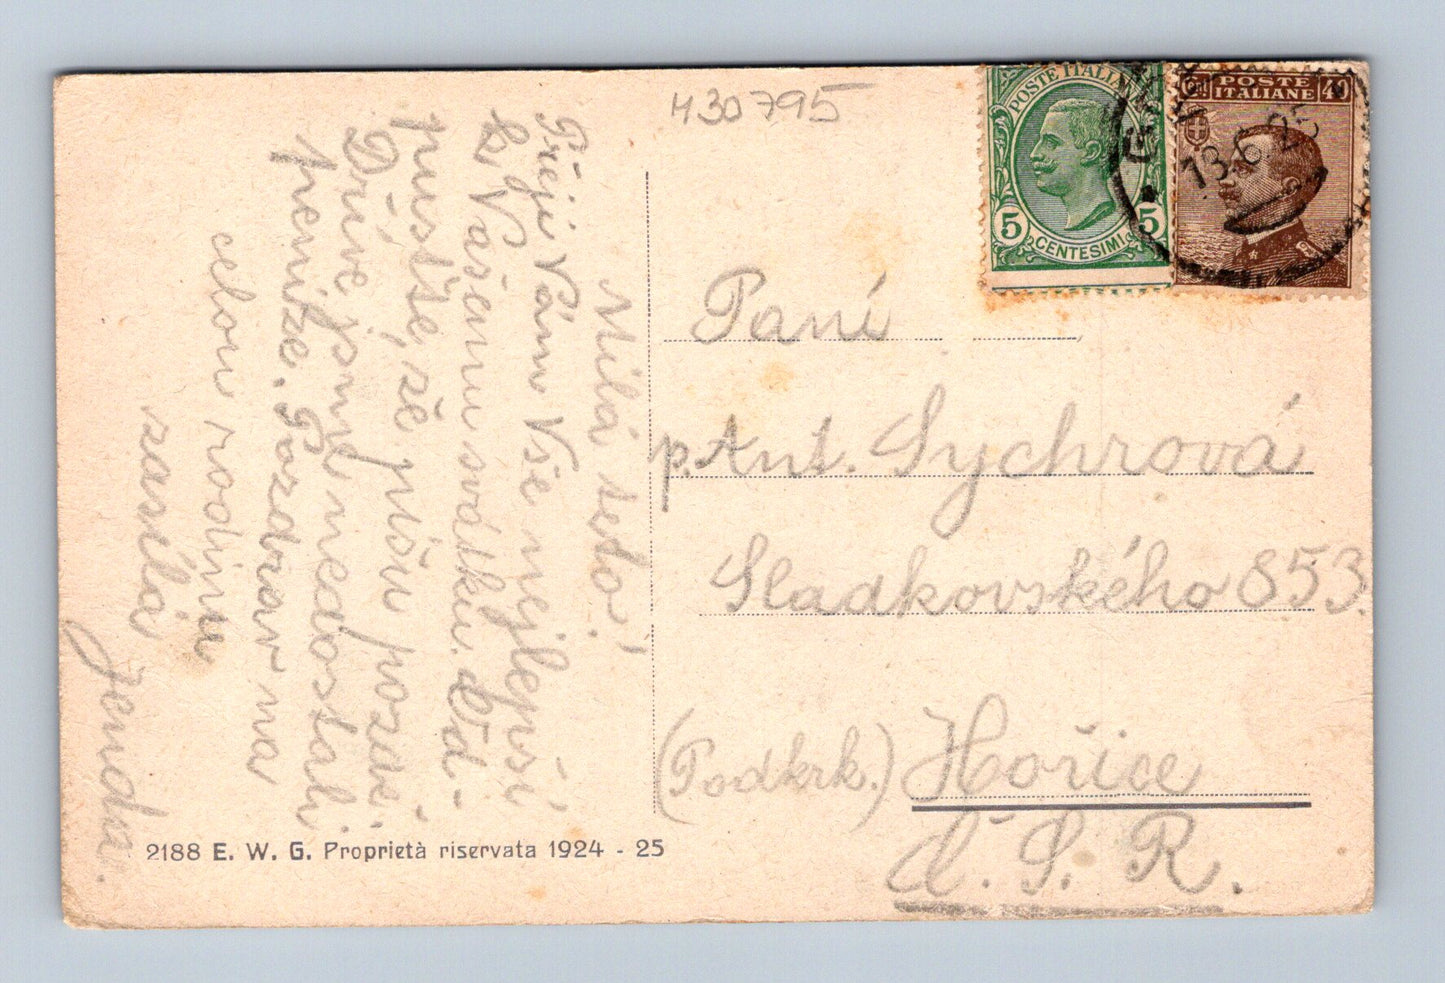 430795
POSTE ITALIANE
5
5
CENTESIMI
POSTE
ITALIANE
40
13.6.25
Milá teto!
Přeji Vám Vše nejlepší
k Vašemu svátku. Od-
pusťte, že píšu pozdě.
Dříve jsme nedostali
peníze. Pozdrav na
celou rodinu
zasílá
Jenda.
Paní
p. Ant. Sychrová
Sladkovského 853.
(Podkrk.) Hořice
Č. S. R.
2188 E. W. G. Proprietà riservata 1924 - 25